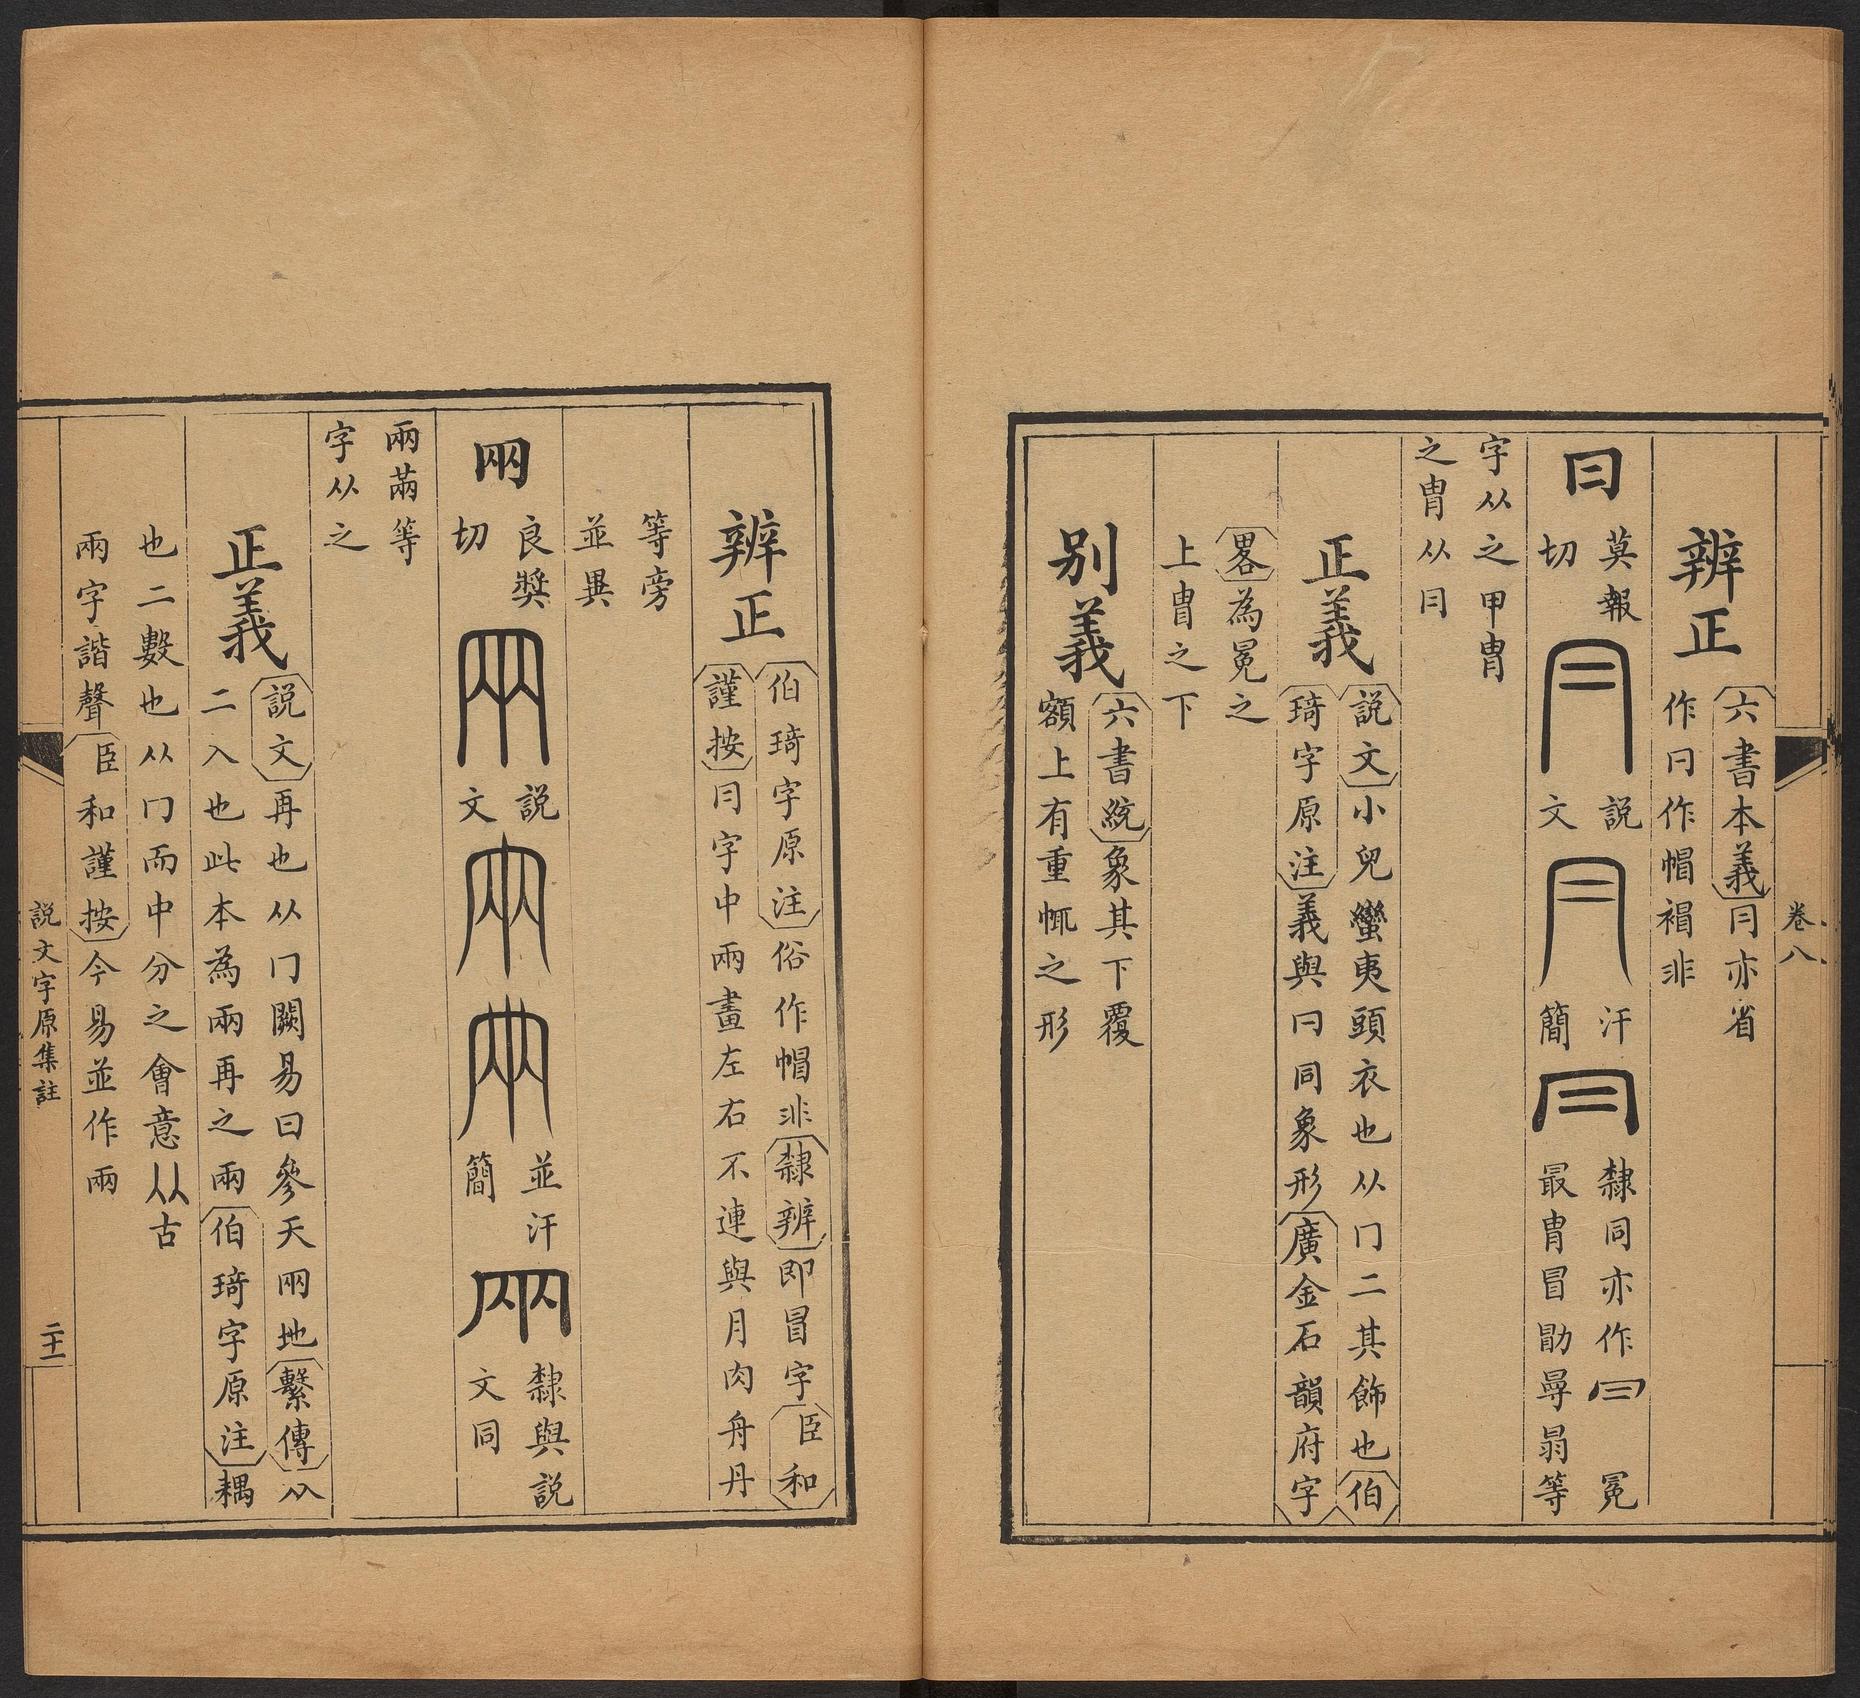 卷八
辨正
六書本義冃亦省
作冃作帽褐非
冃
莫報
切
説
文
汗
簡
隸同亦作
冕
最冑冒勖㝵曷等
字从之甲冑
之冑从冃
正義
説文小兒蠻夷頭衣也从冂二其飾也伯
琦字原注義與冃同象形廣金石韻府字
畧為冕之
上冑之下
别義
六書統象其下覆
額上有重㡌之形
辨正
伯琦字原注俗作帽非隸辨即冒字臣和
謹按冃字中兩畫左右不連與月肉舟丹
等旁
並異
㒳
良奬
切
説
文
並汗
簡
隸與説
文同
兩㒼等
字从之
正義
説文再也从冂闕易曰參天㒳地繫傳从
二入也此本為兩再之兩伯琦字原注耦
也二數也从冂而中分之會意从古
兩字諧聲臣和謹按今易並作兩
説文字原集註
二十一